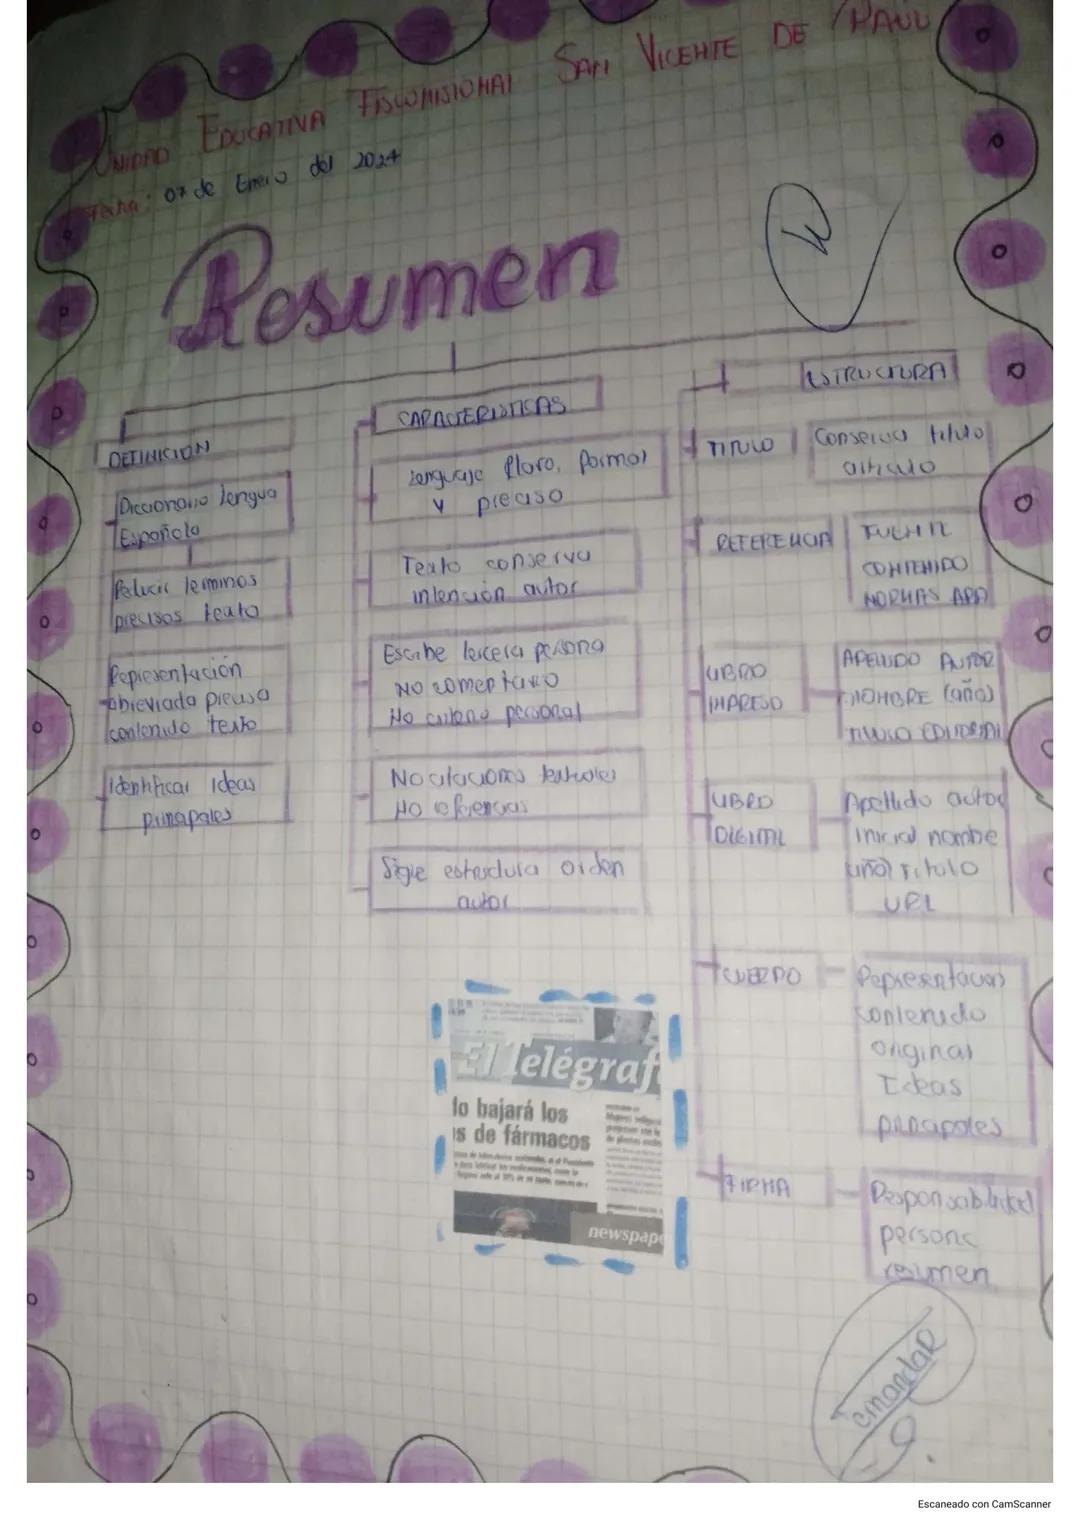 UNIDAD EDUCATIVA FISCOMISIONAL SAN VICENTE DE PAUL
Fecha: 07 de Enero del 2024
Resumen
DEFINICION
Diccionario lengua
Española
Relucir terminos
precisos texto
Representación
abreviada precisa
contenido texto
Identificar Ideas
principales
CARACTERISTICAS
Lenguaje claro, formal
y preciso
Texto conserva
intención autor
Escribe tercera persona
No comentario
No criterio personal
No citaciones textuales
No referencias
Sigie estructura orden
autor
ESTRUCTURA
TITULO
Conserva titulo
articulo
REFERENCIA
FUENTE
CONTENIDO
NORMAS APA
LIBRO
IMPRESO
APELLIDO AUTOR
NOMBRE (año)
TITULO EDITORIAL
LIBRO
DIGITAL
Apellido autor
inicial nombre
(año) Titulo
URL
CUERPO
Representacion
contenido
original
Ideas
principales
FIRMA
Responsabilidad
persona
resumen
El Telégraf
lo bajará los
s de fármacos
newspape
Escaneado con CamScanner